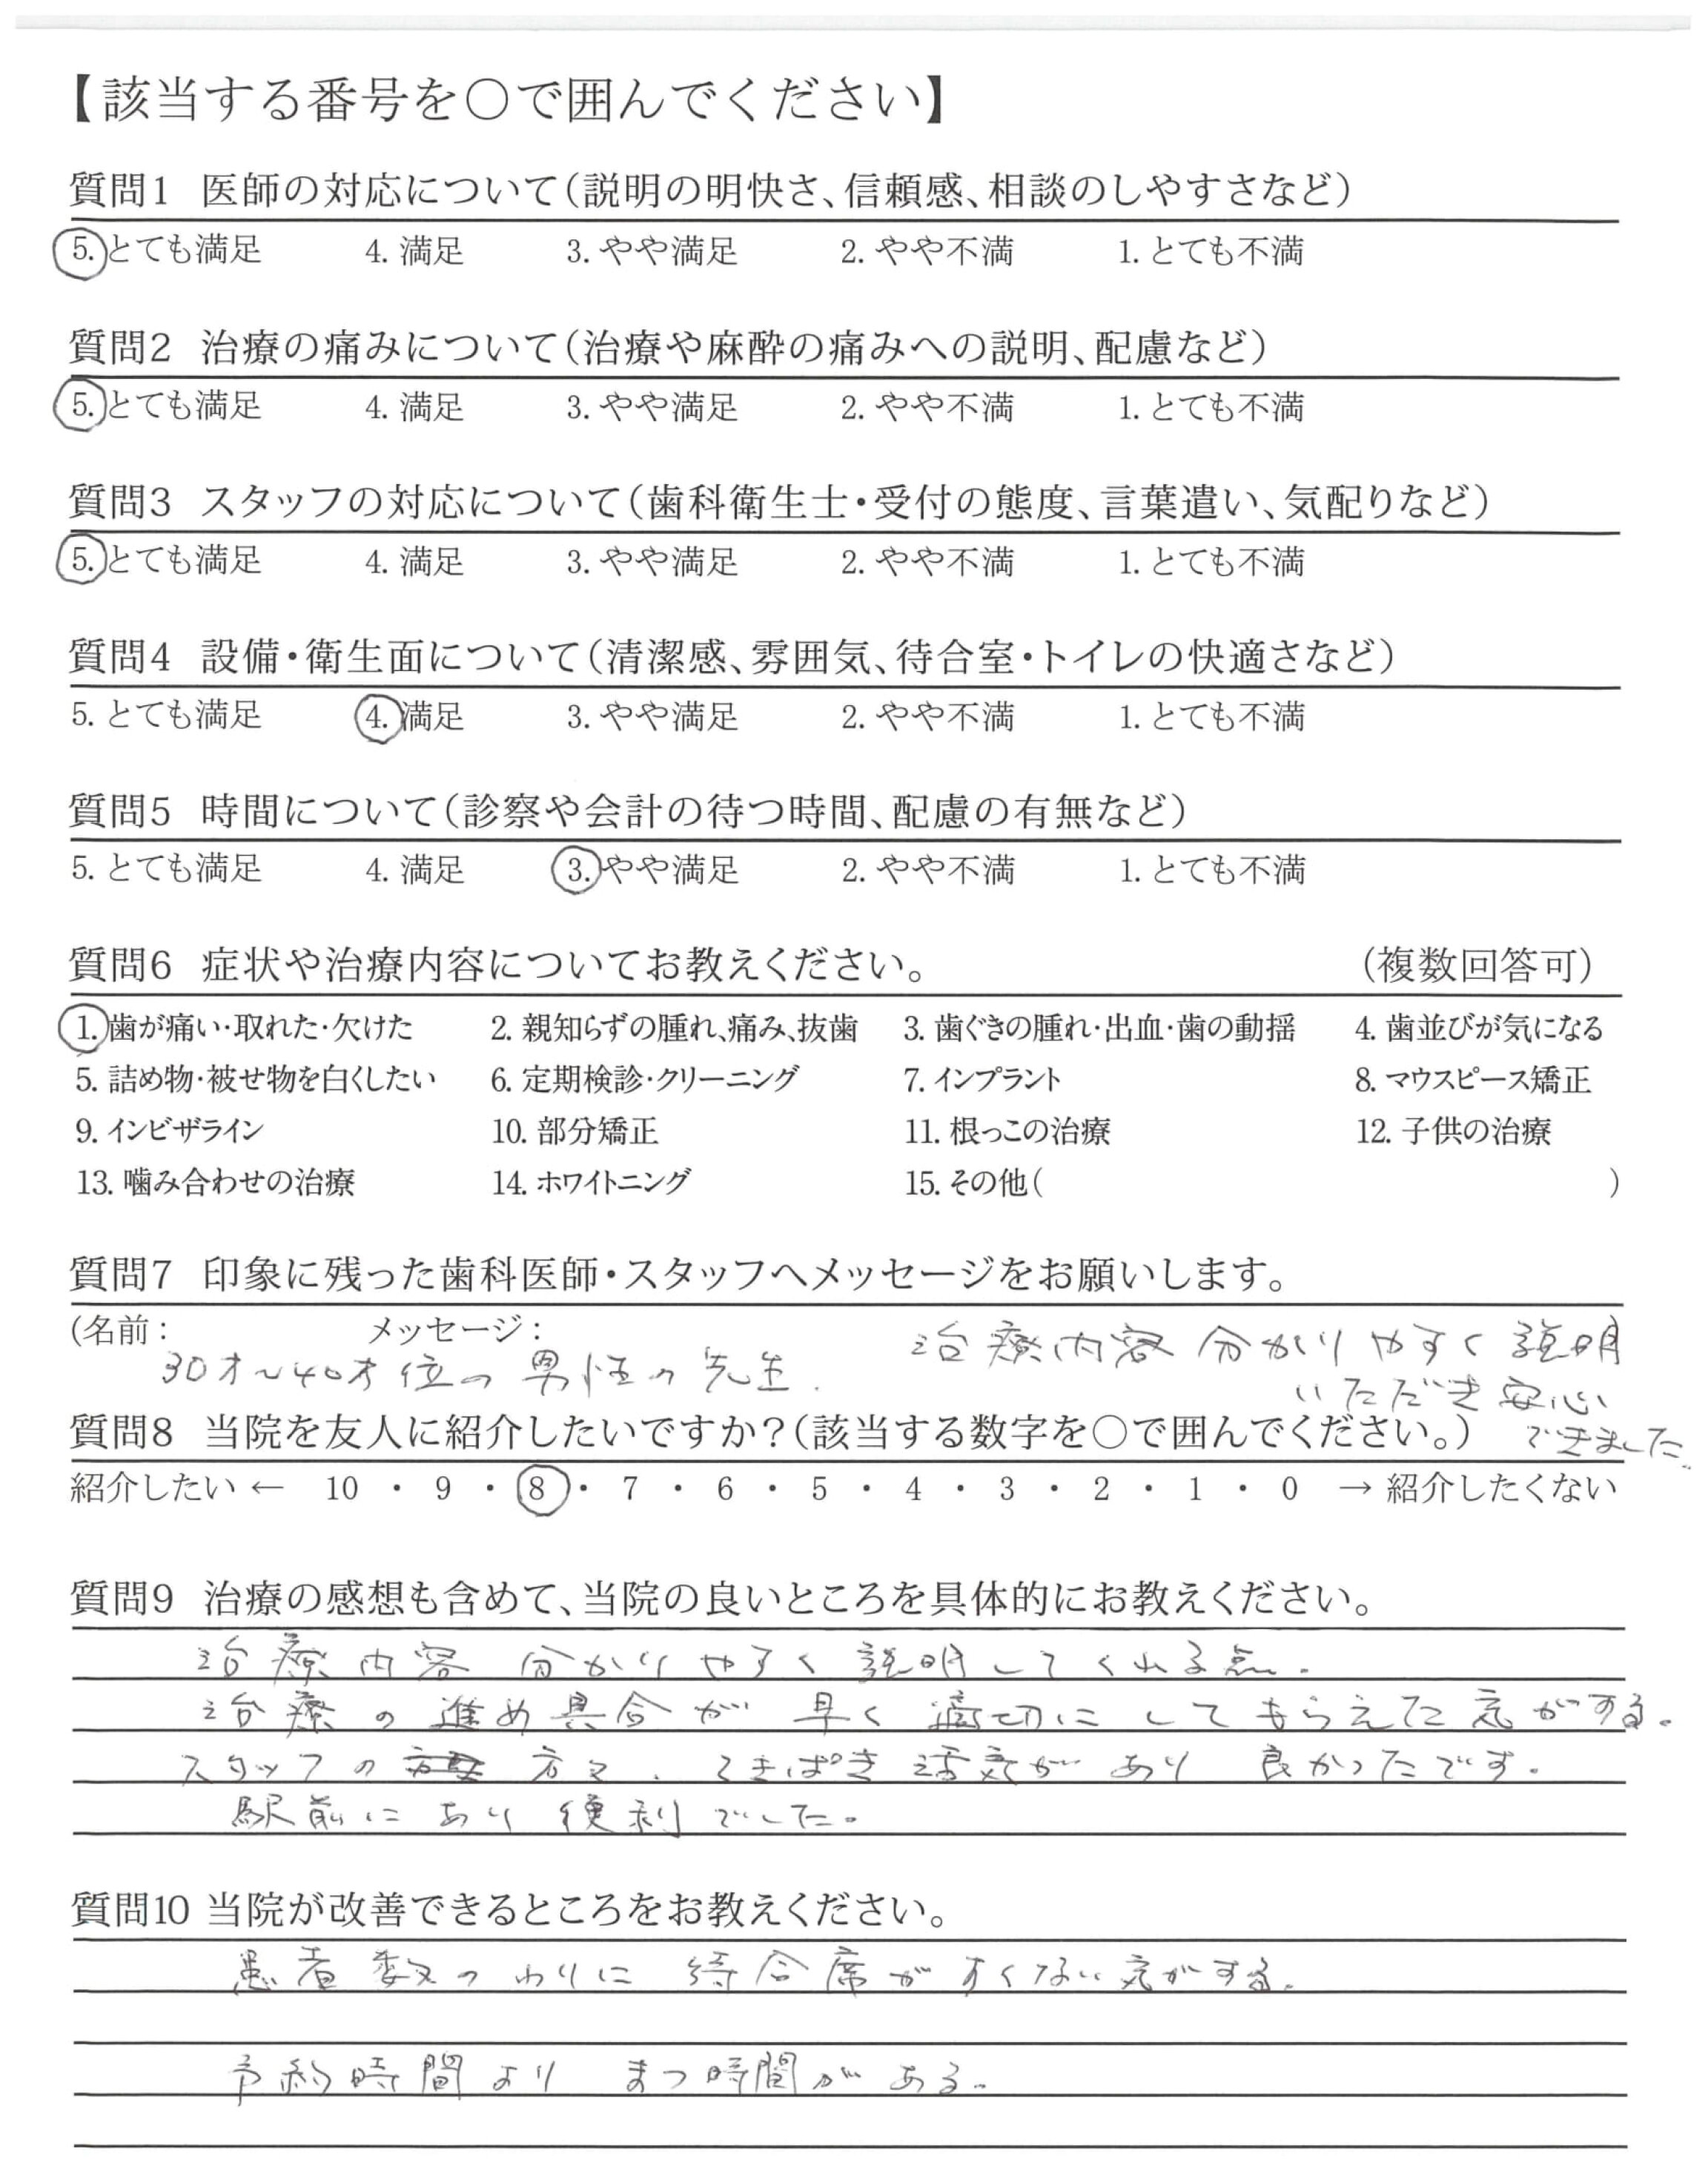 【該当する番号を○で囲んでください】
質問1 医師の対応について(説明の明快さ、信頼感、相談のしやすさなど)
5. とても満足 4. 満足 3. やや満足 2. やや不満 1. とても不満
質問2 治療の痛みについて(治療や麻酔の痛みへの説明、配慮など)
5. とても満足 4. 満足 3. やや満足 2. やや不満 1. とても不満
質問3 スタッフの対応について(歯科衛生士・受付の態度、言葉遣い、気配りなど)
5. とても満足 4. 満足 3. やや満足 2. やや不満 1. とても不満
質問4 設備・衛生面について(清潔感、雰囲気、待合室・トイレの快適さなど)
5. とても満足 4. 満足 3. やや満足 2. やや不満 1. とても不満
質問5 時間について(診察や会計の待つ時間、配慮の有無など)
5. とても満足 4. 満足 3. やや満足 2. やや不満 1. とても不満
質問6 症状や治療内容についてお教えください。 (複数回答可)
1. 歯が痛い・取れた・欠けた 2. 親知らずの腫れ、痛み、抜歯 3. 歯ぐきの腫れ・出血・歯の動揺 4. 歯並びが気になる
5. 詰め物・被せ物を白くしたい 6. 定期検診・クリーニング 7. インプラント 8. マウスピース矯正
9. インビザライン 10. 部分矯正 11. 根っこの治療 12. 子供の治療
13. 噛み合わせの治療 14. ホワイトニング 15. その他( )
質問7 印象に残った歯科医師・スタッフへメッセージをお願いします。
(名前: メッセージ: 治療内容 分かりやすく説明
30才〜40才位の男性の先生. いただき安心
できました.
質問8 当院を友人に紹介したいですか?(該当する数字を○で囲んでください。)
紹介したい ← 10 ・ 9 ・ 8 ・ 7 ・ 6 ・ 5 ・ 4 ・ 3 ・ 2 ・ 1 ・ 0 → 紹介したくない
質問9 治療の感想も含めて、当院の良いところを具体的にお教えください。
治療内容 分かりやすく説明してくれる点.
治療の進め具合が 早く適切にしてもらえた気がする.
スタッフの 方々、てきぱき活気があり 良かったです.
駅前にあり便利でした。
質問10 当院が改善できるところをお教えください。
患者数のわりに 待合席がすくない気がする.
予約時間より まつ時間がある.